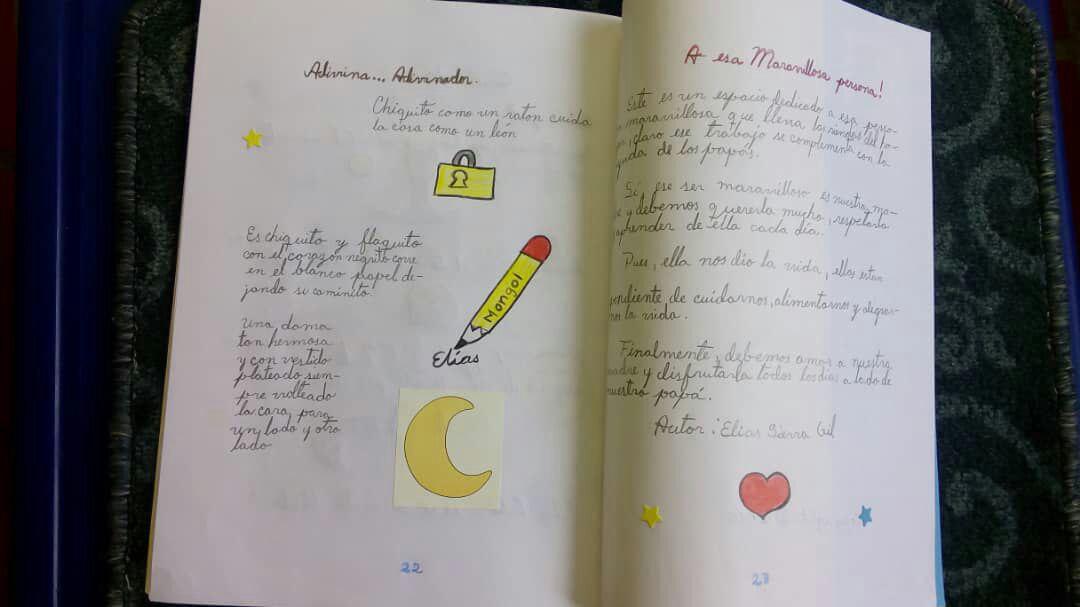 Adivina... Adivinador.
Chiquito como un raton cuida
la casa como un león
Es chiquito y flaquito
con el corazon negrito corre
en el blanco papel de-
jando su caminito.
Mongol
Elías
Una dama
tan hermosa
y con vestido
plateado siem-
pre volteado
la cara, para
un lado y otro
lado
22
A esa Maravillosa persona!
Este es un espacio dedicado a esa perso-
maravillosa que llena los del ho-
claro ese trabajo se complementa con la
de los papás.
Sí, ese ser maravilloso es nuestra ma-
y debemos quererla mucho, respetarla
aprender de ella cada día.
Pues, ella nos dio la vida, ellas estan
pendiente de cuidarnos, alimentarnos y alegrar-
nos la vida.
Finalmente, debemos amar a nuestra
madre y disfrutarla todos los días a lado de
nuestro papá.
Autor: Elías Sierra Gil
23